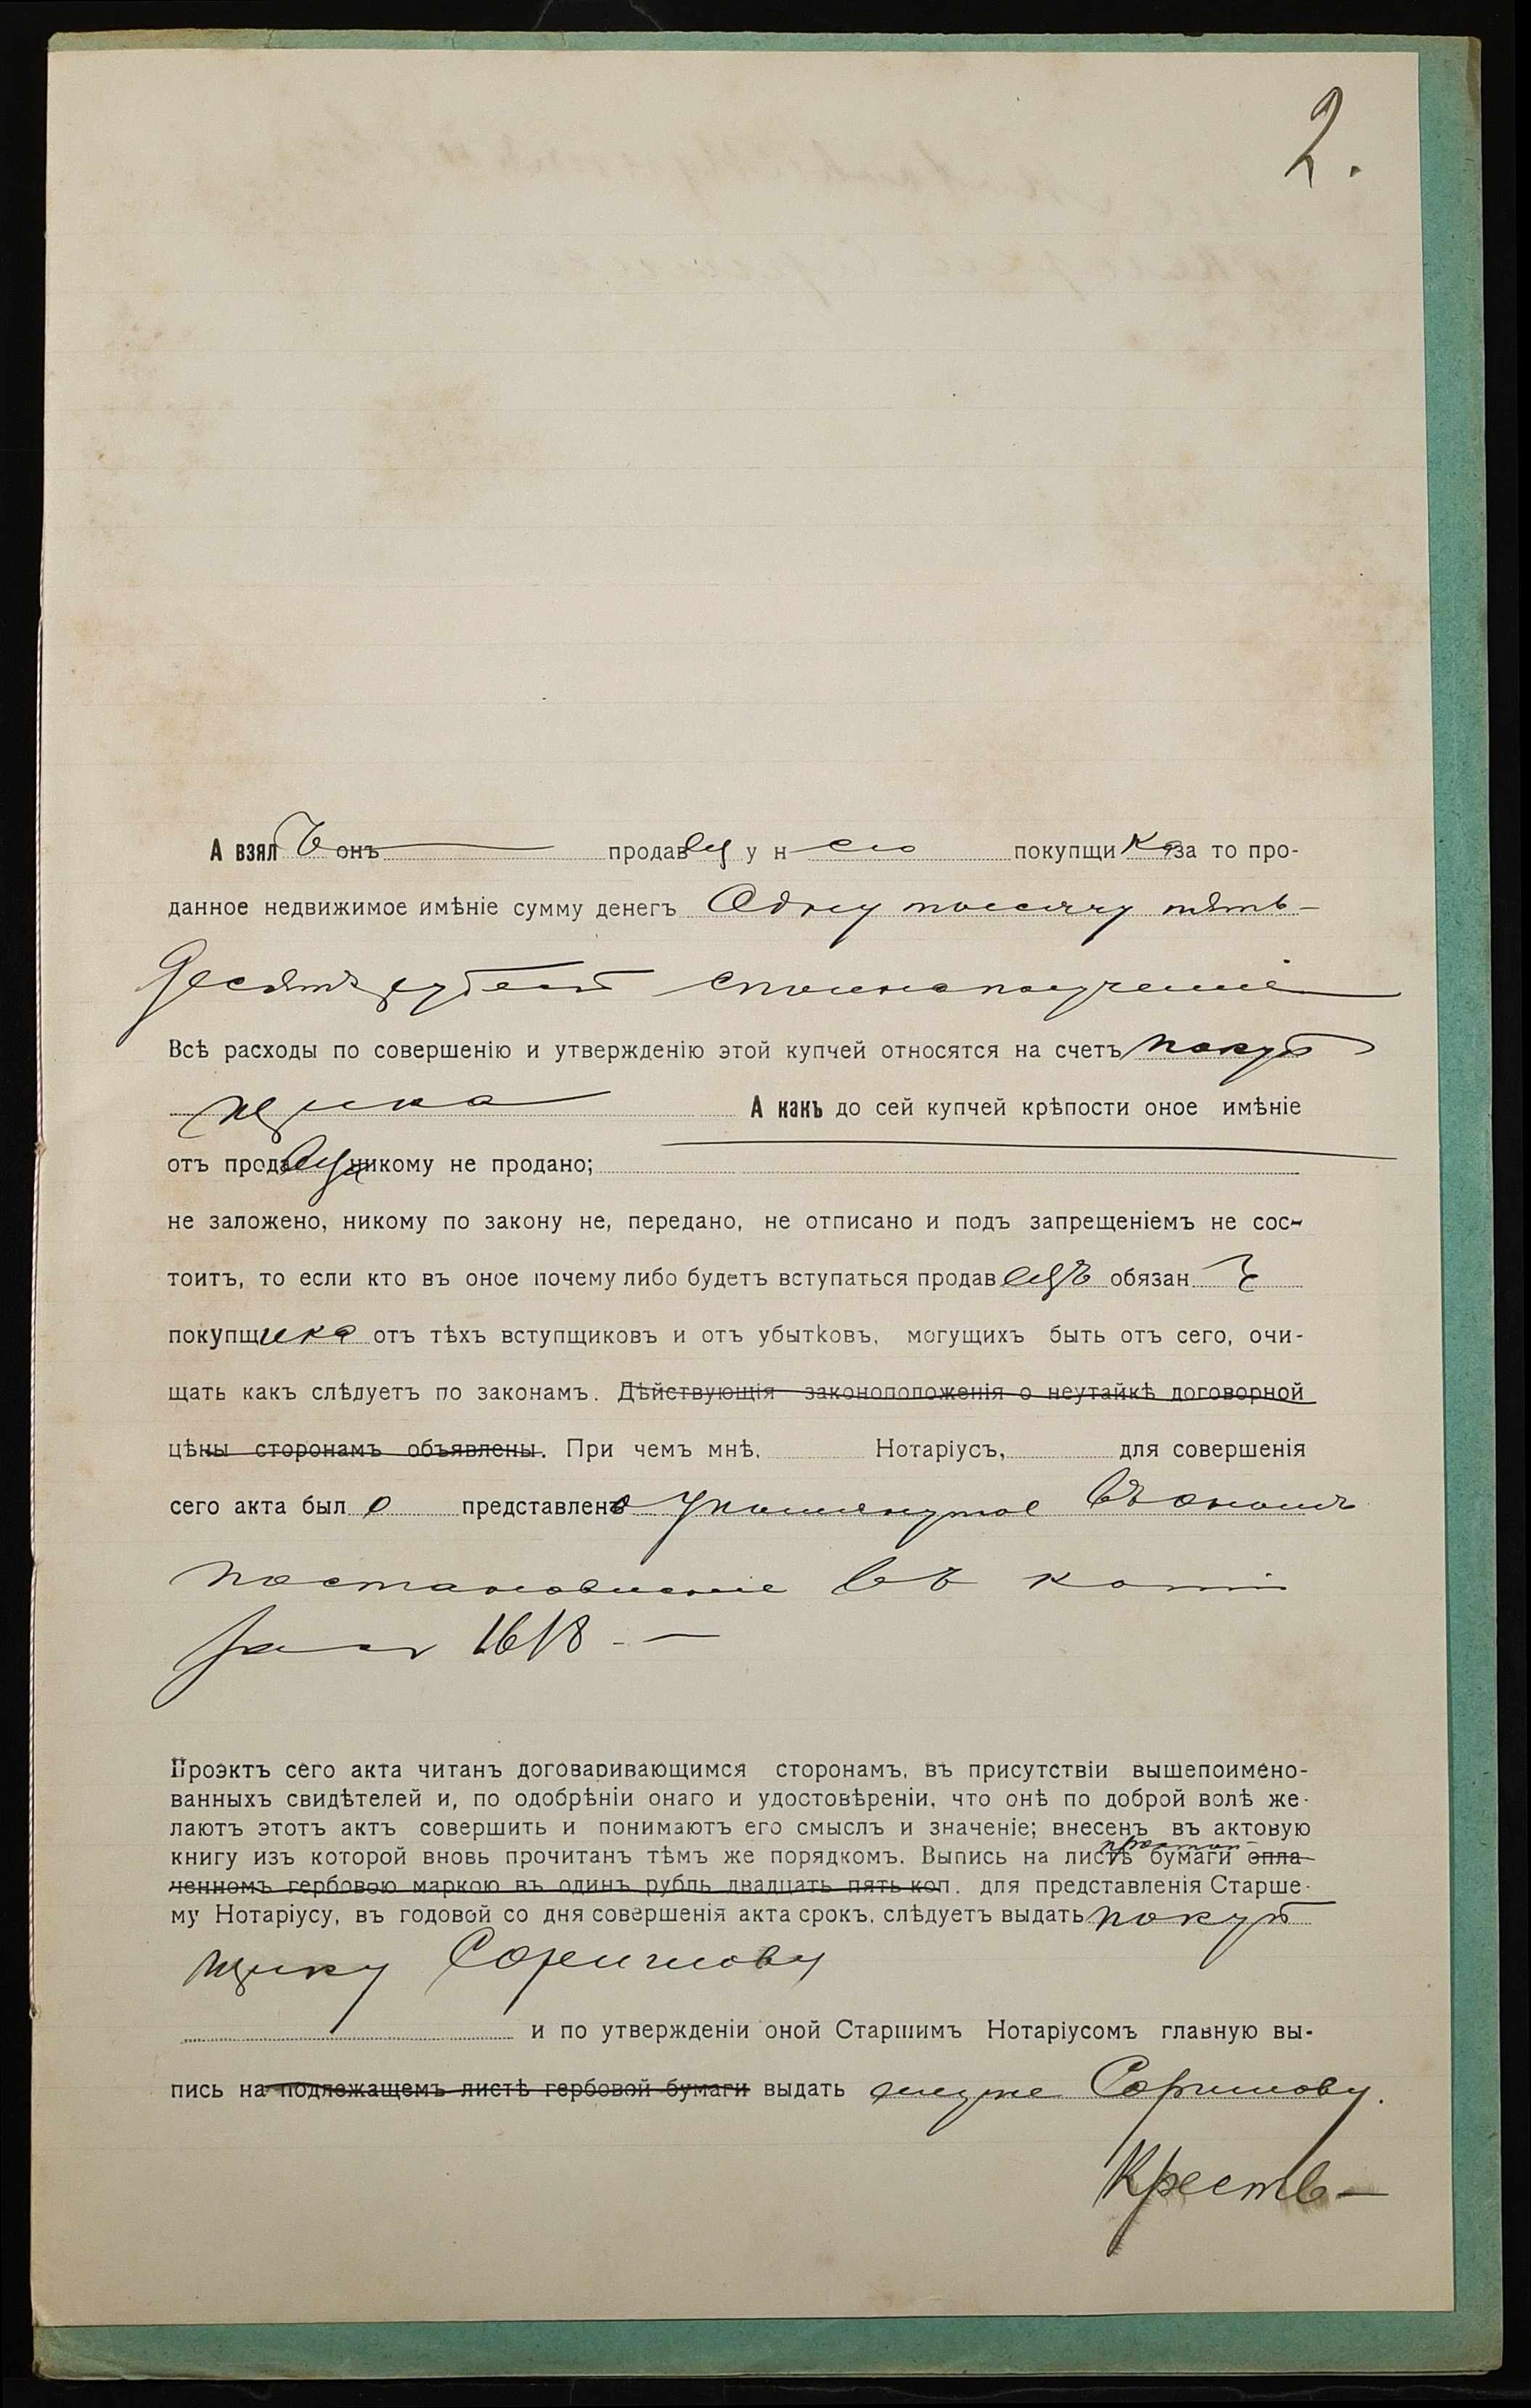 2.
А взялъ онъ продавец у него покупщика за то про-
данное недвижимое имѣніе сумму денегъ Одну тысячу пять-
десятъ рублей сполна
Всѣ расходы по совершенію и утвержденію этой купчей относятся на счетъ покуп
щика А какъ до сей купчей крѣпости оное имѣніе
отъ продавца никому не продано;
не заложено, никому по закону не, передано, не отписано и подъ запрещеніемъ не сос-
тоитъ, то если кто въ оное почему либо будетъ вступаться продавецъ обязанъ
покупщика отъ тѣхъ вступщиковъ и отъ убытковъ, могущихъ быть отъ сего, очи-
щать какъ слѣдуетъ по законамъ. Дѣйствующія законоположенія о неутайкѣ договорной
цѣны сторонамъ объявлены. При чемъ мнѣ, Нотаріусъ, для совершенія
сего акта было представлено упомянутое въ ономъ
постановленіе въ копіи
1618 -
Проэктъ сего акта читанъ договаривающимся сторонамъ, въ присутствіи вышепоимено-
ванныхъ свидѣтелей и, по одобрѣніи онаго и удостовѣреніи, что онѣ по доброй волѣ же-
лаютъ этотъ актъ совершить и понимаютъ его смыслъ и значеніе; внесенъ въ актовую
простой
книгу изъ которой вновь прочитанъ тѣмъ же порядкомъ. Выпись на листѣ бумаги опла-
ченномъ гербовою маркою въ одинъ рубль двадцать пять коп. для представленія Старше-
му Нотаріусу, въ годовой со дня совершенія акта срокъ, слѣдуетъ выдать покуп
щику
и по утвержденіи оной Старшимъ Нотаріусомъ главную вы-
пись на подлежащемъ листѣ гербовой бумаги выдать ему же
Крестъ-